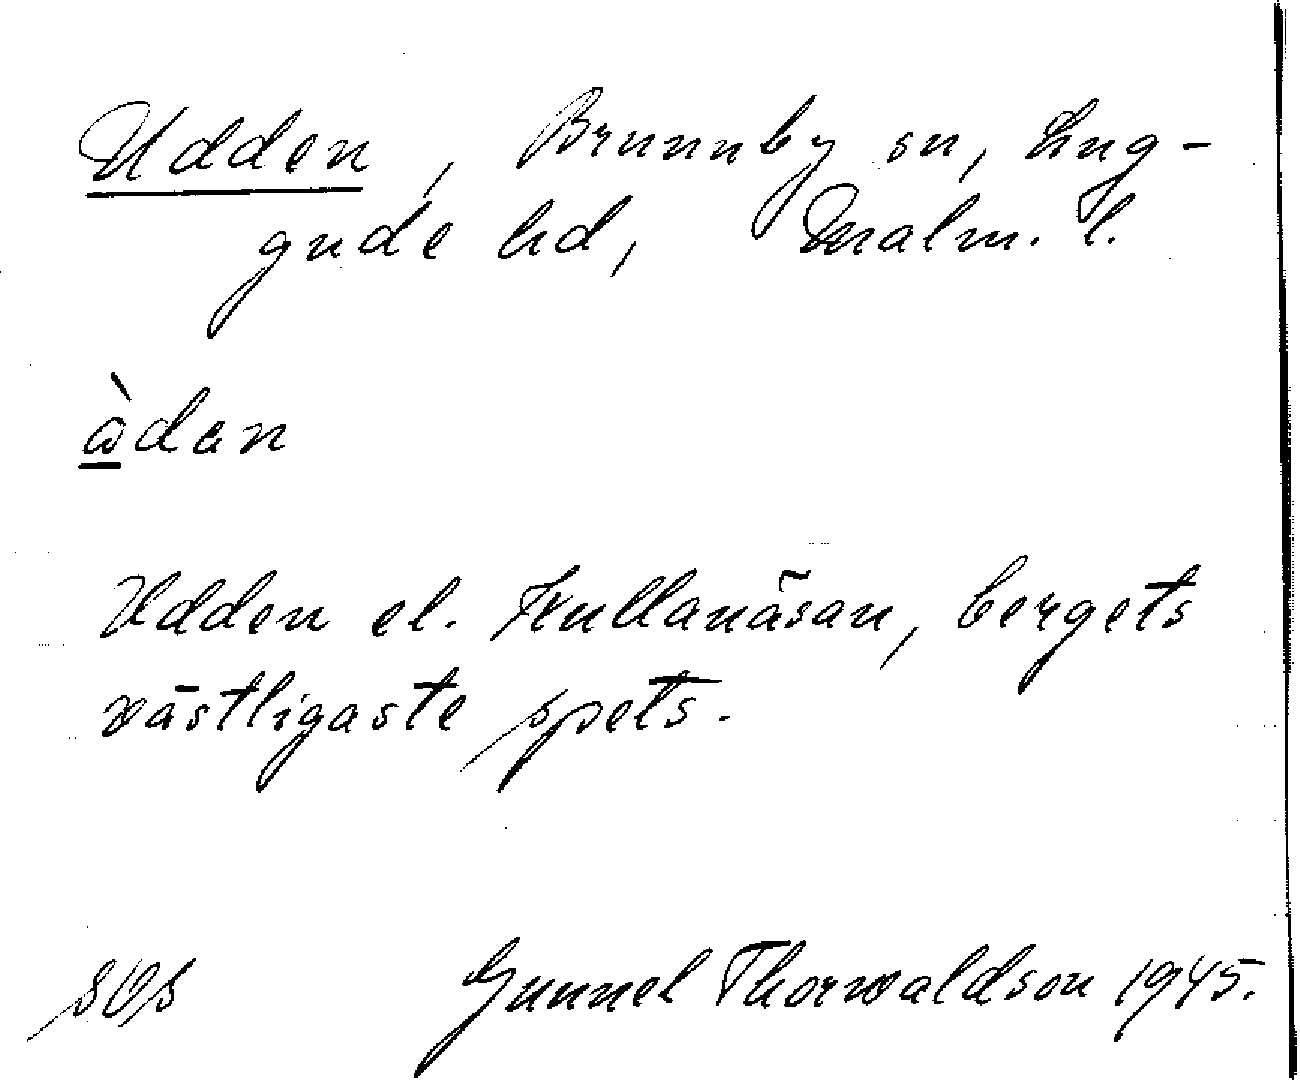 Udden, Brunnby sn, Lug-
gude hd, Malm. l.
àdan
Udden el. Kullanäsan, bergets
västligaste spets.
SOS Gunnel Thorwaldson 1945.